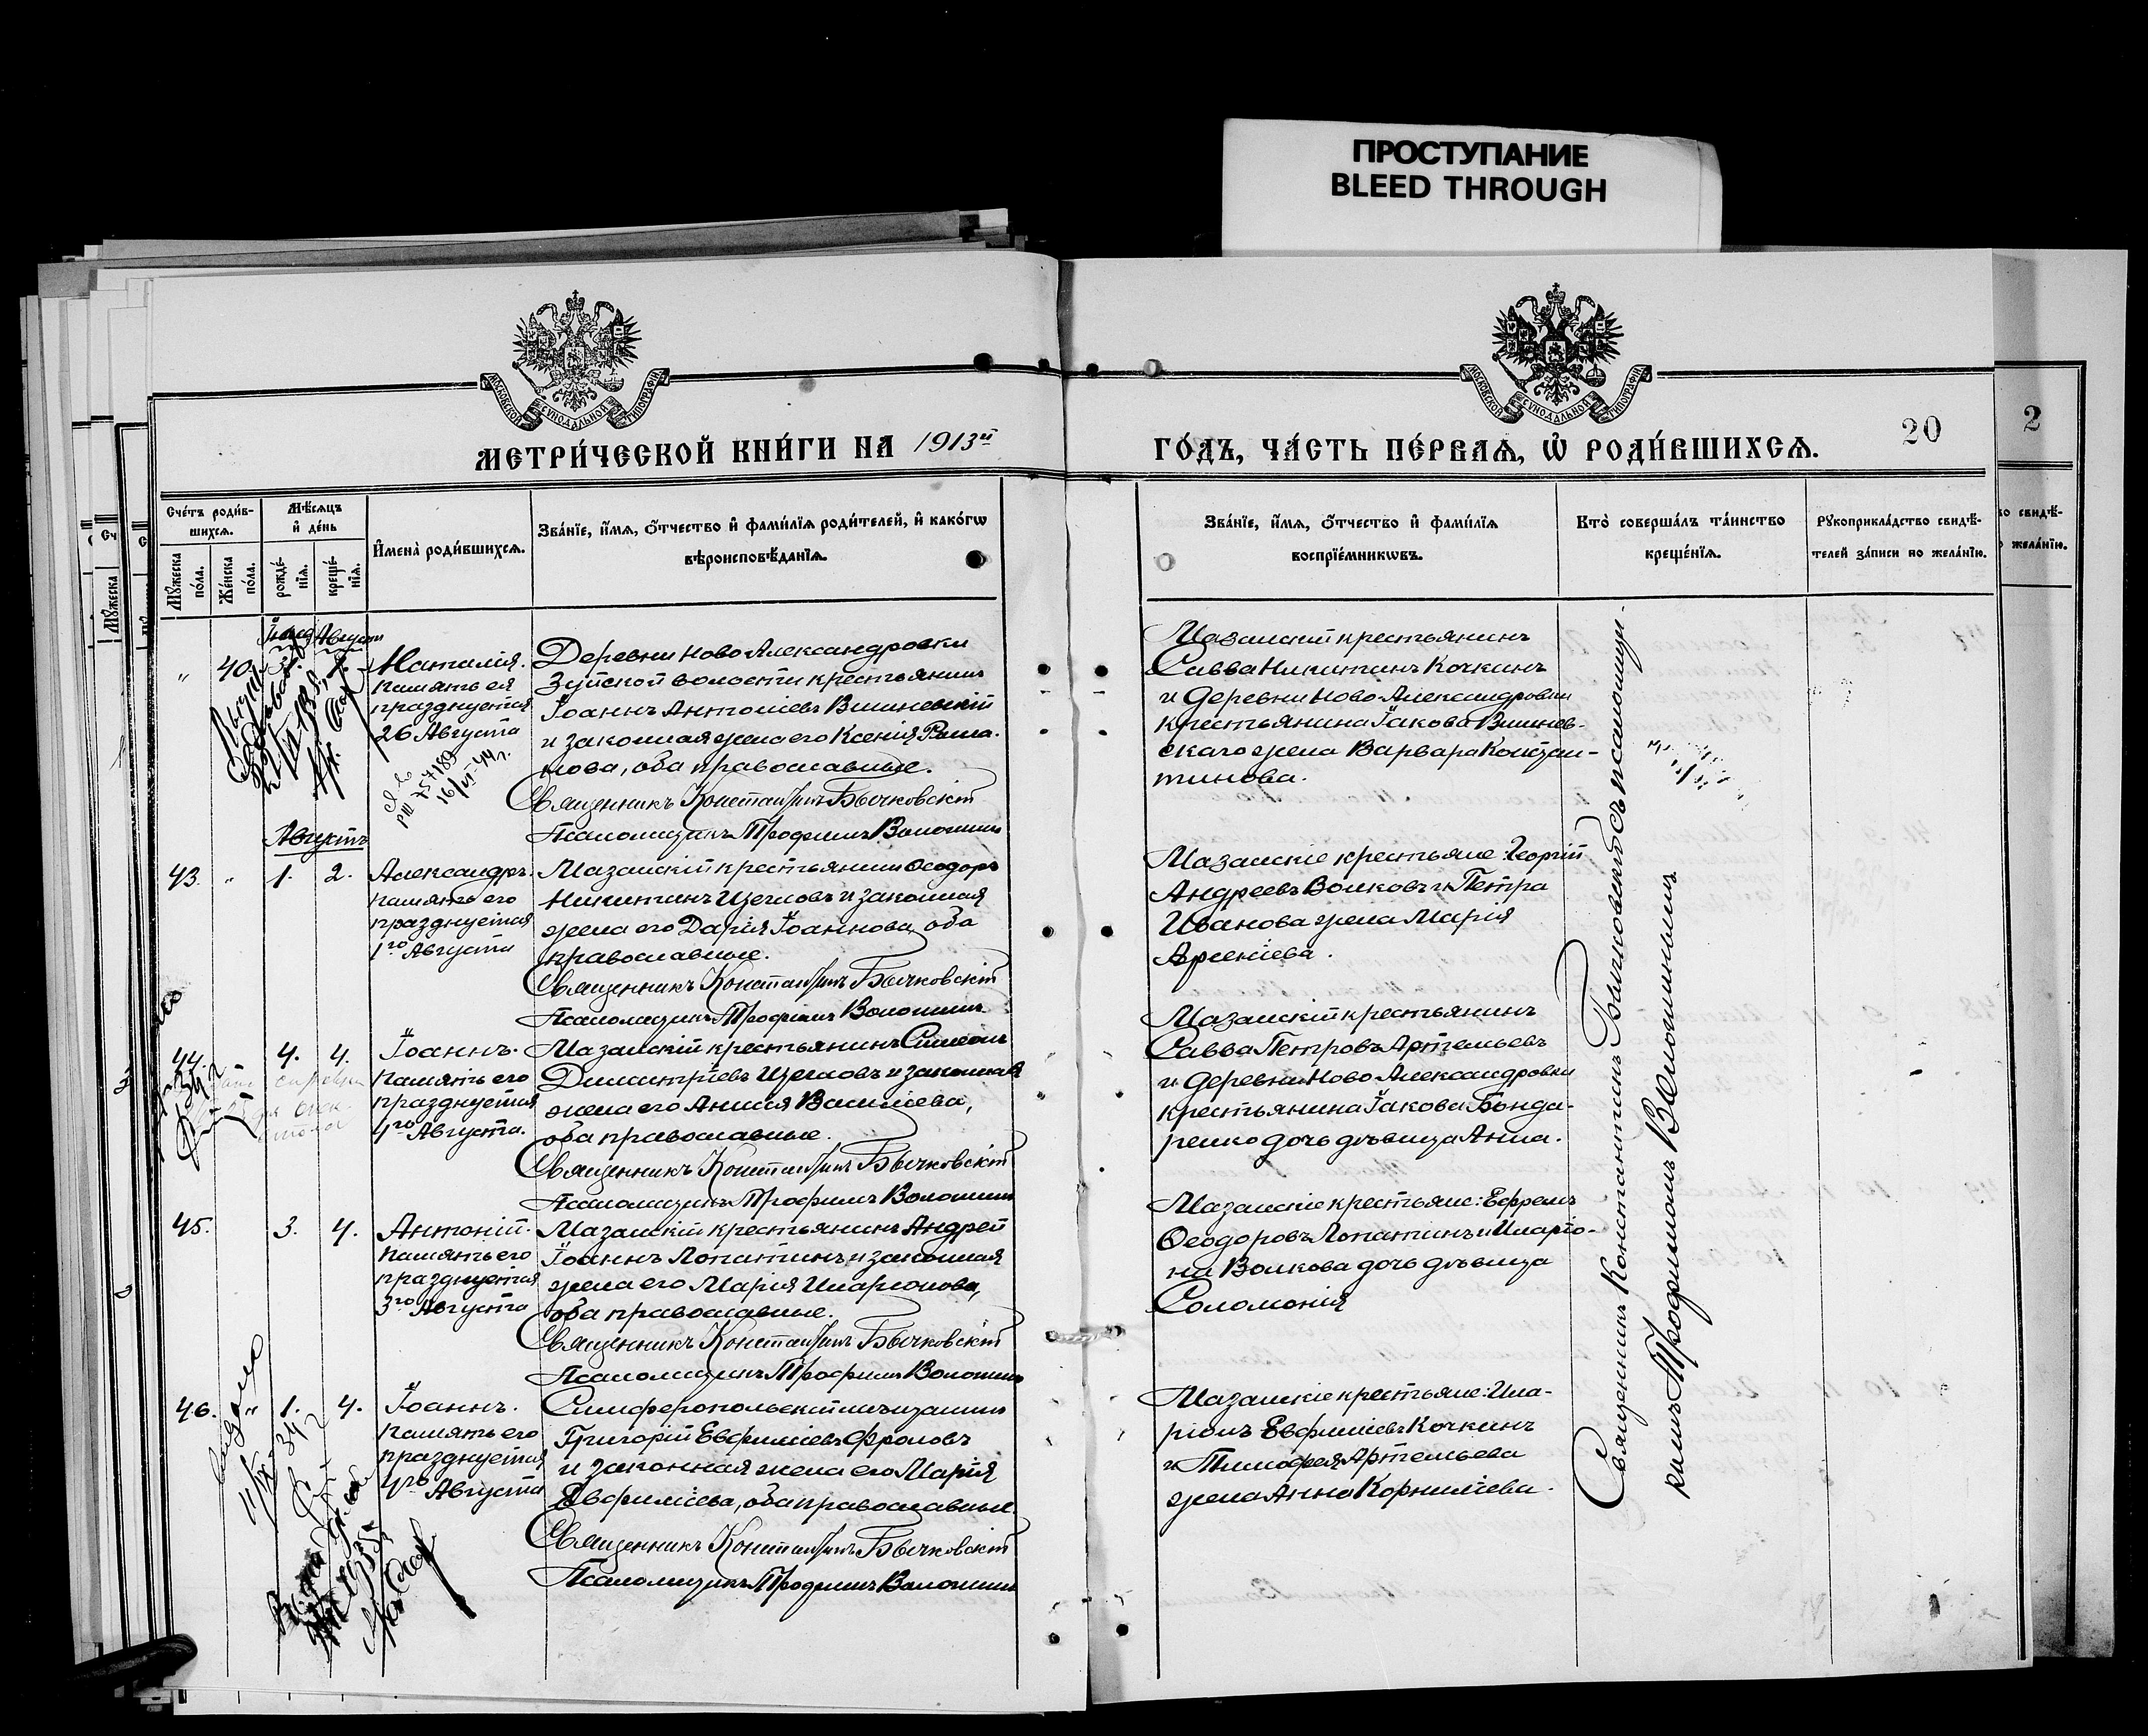 ПРОСТУПАНИЕ
BLEED THROUGH
МОСКОВСКОЙ СѴНОДАЛЬНОЙ ТИПОГРАФІИ
МОСКОВСКОЙ СѴНОДАЛЬНОЙ ТИПОГРАФІИ
МЕТРИ́ЧЕСКОЙ КНИ́ГИ НА 1913й
ГО́ДЪ, ЧА́СТЬ ПЕ́РВАѦ, Ѡ҆ РОДИ́ВШИХСѦ.
20
2
Сче́тъ роди́в-
шихсѧ.
Мѣ́сѧцъ
и҆ де́нь
Мꙋ́жеска
по́ла.
Же́нска
по́ла.
рожде́-
нїѧ.
креще́-
нїѧ.
И҆мена̀ роди́вшихсѧ.
Зва́нїе, и҆́мѧ, ѻ҆́тчество и҆ фами́лїѧ роди́телей, и҆ како́гѡ
вѣроисповѣ́данїѧ.
Зва́нїе, и҆́мѧ, ѻ҆́тчество и҆ фами́лїѧ
воспрїе́мникѡвъ.
Кто̀ соверша́лъ та́инство
креще́нїѧ.
Рꙋкоприкла́дство свидѣ́-
телей за́писи по жела́нїю.
Августа
" 40. 31. 1. Наталія.
Память ея
празднуется
26 Августа
757189
16/VI-44 г.
Деревни Ново Александровки
Зуйской волости крестьянинъ
Іоаннъ Антоніевъ Вишневскій
и законная жена его Ксенія Рома-
нова, оба православные.
Священникъ Константинъ Бычковскій
Псаломщикъ Трофимъ Волошинъ
Мазанскій крестьянинъ
Савва Никитинъ Кочкинъ
и деревни Ново Александровки
крестьянина Іакова Вишнев-
скаго жена Варвара Констан-
тинова.
Августъ
43. " 1. 2. Александръ.
память его
празднуется
1го Августа
Мазанскій крестьянинъ Ѳеодоръ
Никитинъ Щегловъ и законная
жена его Дарія Іоаннова, оба
православные.
Священникъ Константинъ Бычковскій
Псаломщикъ Трофимъ Волошинъ
Мазанскіе крестьяне: Георгій
Андреевъ Волковъ и Петра
Иванова жена Марія
Арсеніева.
44. 4. 4. Іоаннъ.
Память его
празднуется
4го Августа.
Мазанскій крестьянинъ Симеонъ
Димитріевъ Щегловъ и законная
жена его Анисія Василіева,
оба православные.
Священникъ Константинъ Бычковскій
Псаломщикъ Трофимъ Волошинъ
Мазанскій крестьянинъ
Савва Петровъ Артемьевъ
и деревни Ново Александровки
крестьянина Іакова Бонда-
ренко дочь дѣвица Анна.
45. 3. 4. Антоній.
Память его
празднуется
3го Августа
Мазанскій крестьянинъ Андрей
Іоаннъ Лопатинъ и законная
жена его Марія Иларіонова,
оба православные.
Священникъ Константинъ Бычковскій
Псаломщикъ Трофимъ Волошинъ
Мазанскіе крестьяне: Ефремъ
Ѳеодоровъ Лопатинъ и Иларіо-
на Волкова дочь дѣвица
Соломонія
46. " 1. 4. Іоаннъ.
Память его
празднуется
4го Августа
Симферопольскій мѣщанинъ
Григорій Евфиміевъ Фроловъ
и законная жена его Марія
Евфиміева, оба православные.
Священникъ Константинъ Бычковскій
Псаломщикъ Трофимъ Волошинъ
Мазанскіе крестьяне: Ила-
ріонъ Евфиміевъ Кочкинъ
и Тимофея Артемьева
жена Анна Корниліева.
Священникъ Константинъ Бычковскій съ псаломщи-
комъ Трофимомъ Волошинымъ